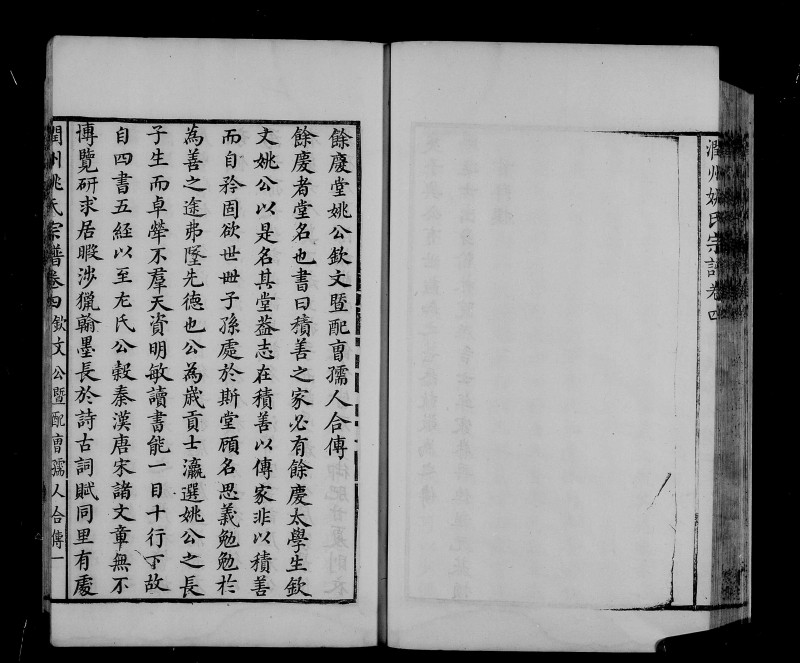 潤州姚氏宗譜卷四
餘慶堂姚公欽文暨配曺孺人合傳
餘慶者堂名也書曰積善之家必有餘慶太學生欽
文姚公以是名其堂葢志在積善以傳家非以積善
而自矜固欲世世子孫處於斯堂顧名思義勉勉於
為善之途弗墜先德也公為歲貢士瀛選姚公之長
子生而卓犖不羣天資明敏讀書能一目十行下故
自四書五經以至左氏公穀秦漢唐宋諸文章無不
博覽研求居暇涉獵翰墨長於詩古詞賦同里有處
潤州姚氏宗譜卷四 欽文公暨配曺孺人合傳一